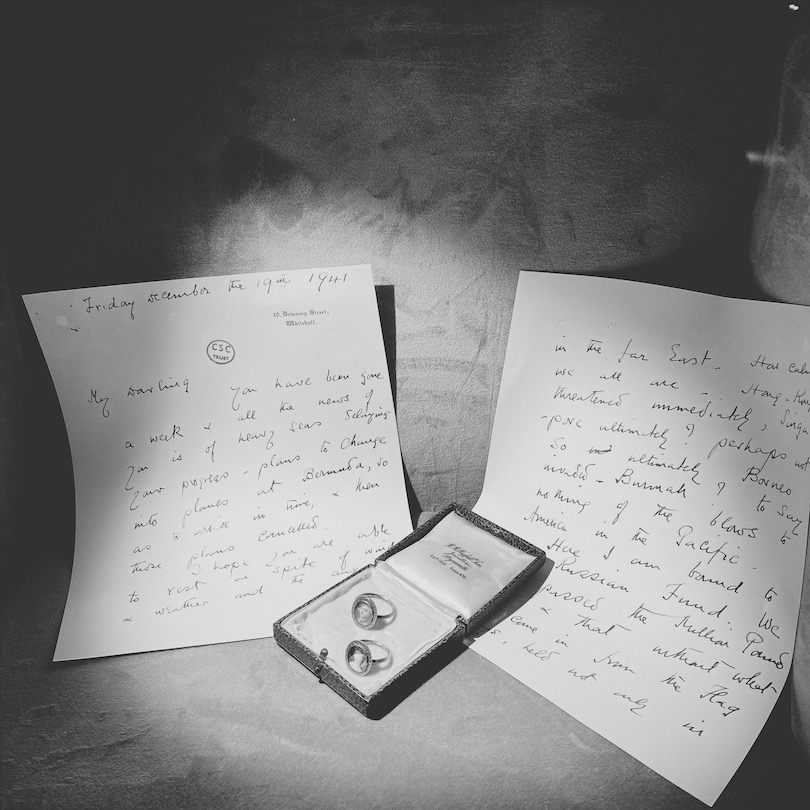 Friday December the 19th 1941
10, Downing Street,
Whitehall.
CSC
TRUST
My Darling You have been gone
a week & all the news of
You is of heavy seas delaying
Your progress - plans to change
into planes at Bermuda, so
as to arrive in time, & then
those plans cancelled.
I hope you are able
to rest in spite of wind
& weather and the
in the far East - How calm
we all are - Hong-Kong
threatened immediately, Singa
-pore ultimately? perhaps not
so ultimately? Borneo
invaded - Burmah? to say
nothing of the blows to
America in the Pacific.
Here I am bound to
Russian Fund: We
passed the Million Pound
& that without what
came in from the Flag
held not only in